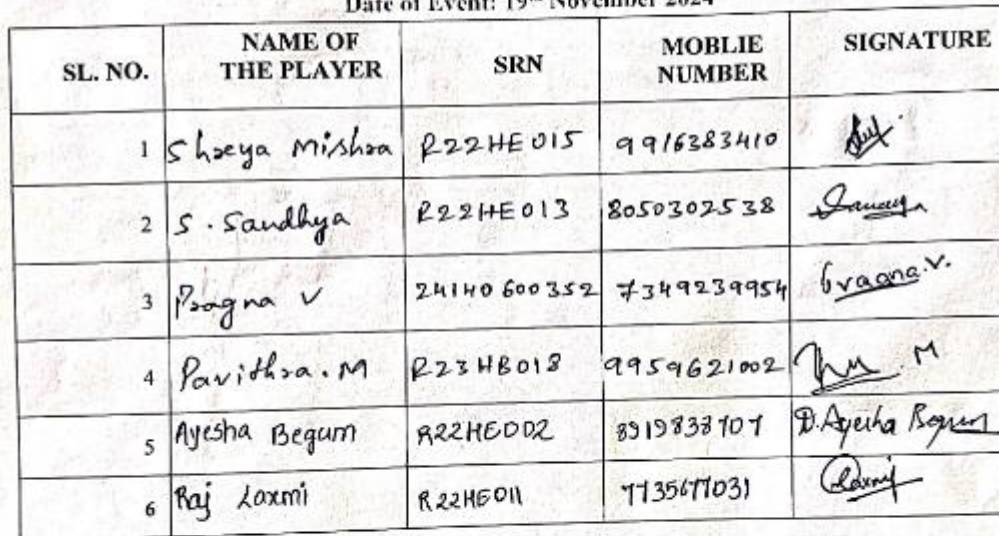 Date of Event: 19th November 2024
SL. NO. NAME OF THE PLAYER SRN MOBLIE NUMBER SIGNATURE
1 Shreya Mishra R22HE015 9916383410
2 S. Sandhya R22HE013 8050302538
3 Pragna V 24140600352 7349239954 Pragna.V.
4 Pavithra.M R23HB018 9959621002 M
5 Ayesha Begum R22HE002 8919838707 D.Ayesha Begum
6 Raj Laxmi R22HE011 7735677031